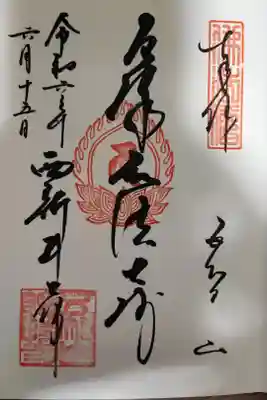 奉拝
五智山
厄除弘法大師
令和六年
六月十五日
西新井大師